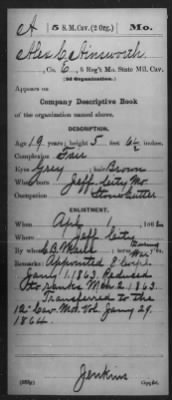 A 5 S.M. Cav. (2 Org.) Mo.
Alex C Ainsworth
, Co. C, 5 Reg't Mo. State Mil. Cav.
(2d Organization.)
Appears on
Company Descriptive Book
of the organization named above.
DESCRIPTION.
Age 19 years; height 5 feet 6½ inches.
Complexion Fair
Eyes Grey; hair Brown
Where born Jeff. City Mo.
Occupation Stone Cutter
ENLISTMENT.
When Apl 1, 186
Where Jeff. City
By whom C.B. ; term y'rs.
During War
Remarks: Appointed 8 Corpl.
Jany 1. 1863. Reduced
to ranks Mar 2. 1863.
Transferred to the
12" Cav Mo. Vol. Jany 29.
1864.
Jenkins
Copyist.